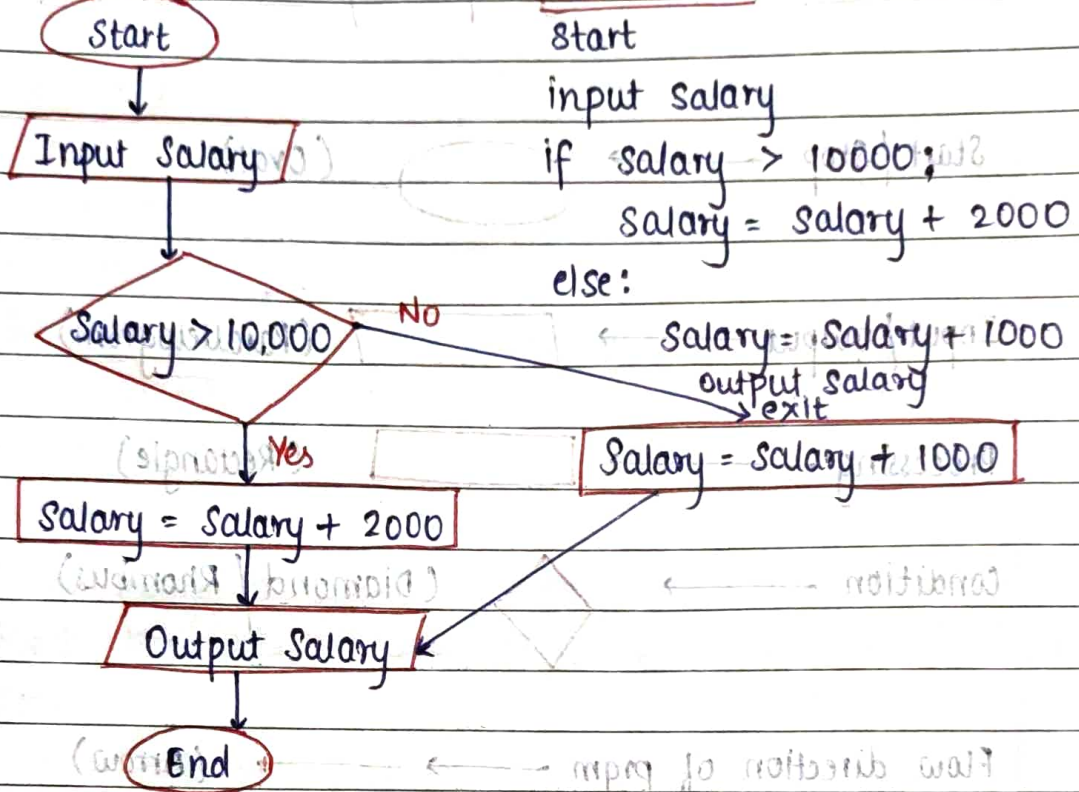 Start
Input Salary
Salary > 10,000
No
Yes
Salary = Salary + 2000
Salary = Salary + 1000
Output Salary
End
Start
input salary
if salary > 10000;
salary = salary + 2000
else:
salary = salary + 1000
output salary
exit